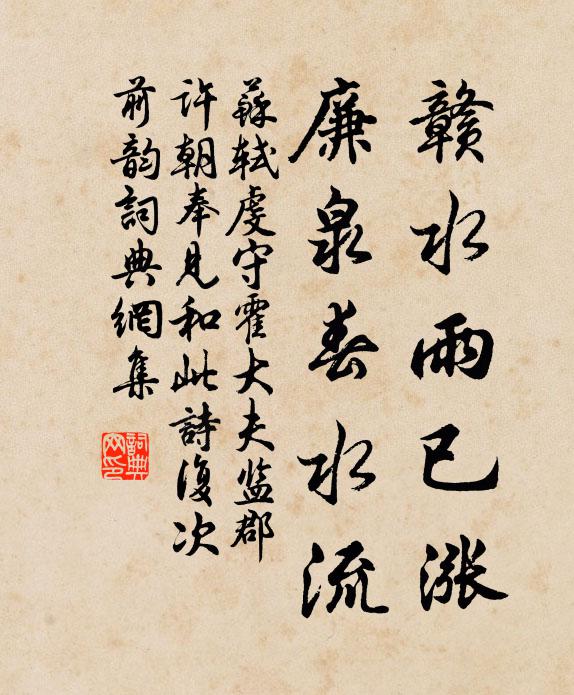 贛水雨已漲
廉泉春水流
蘇軾虔守霍大夫监郡
許朝奉見和此詩復次
前韵詞典網集
詞典
网印